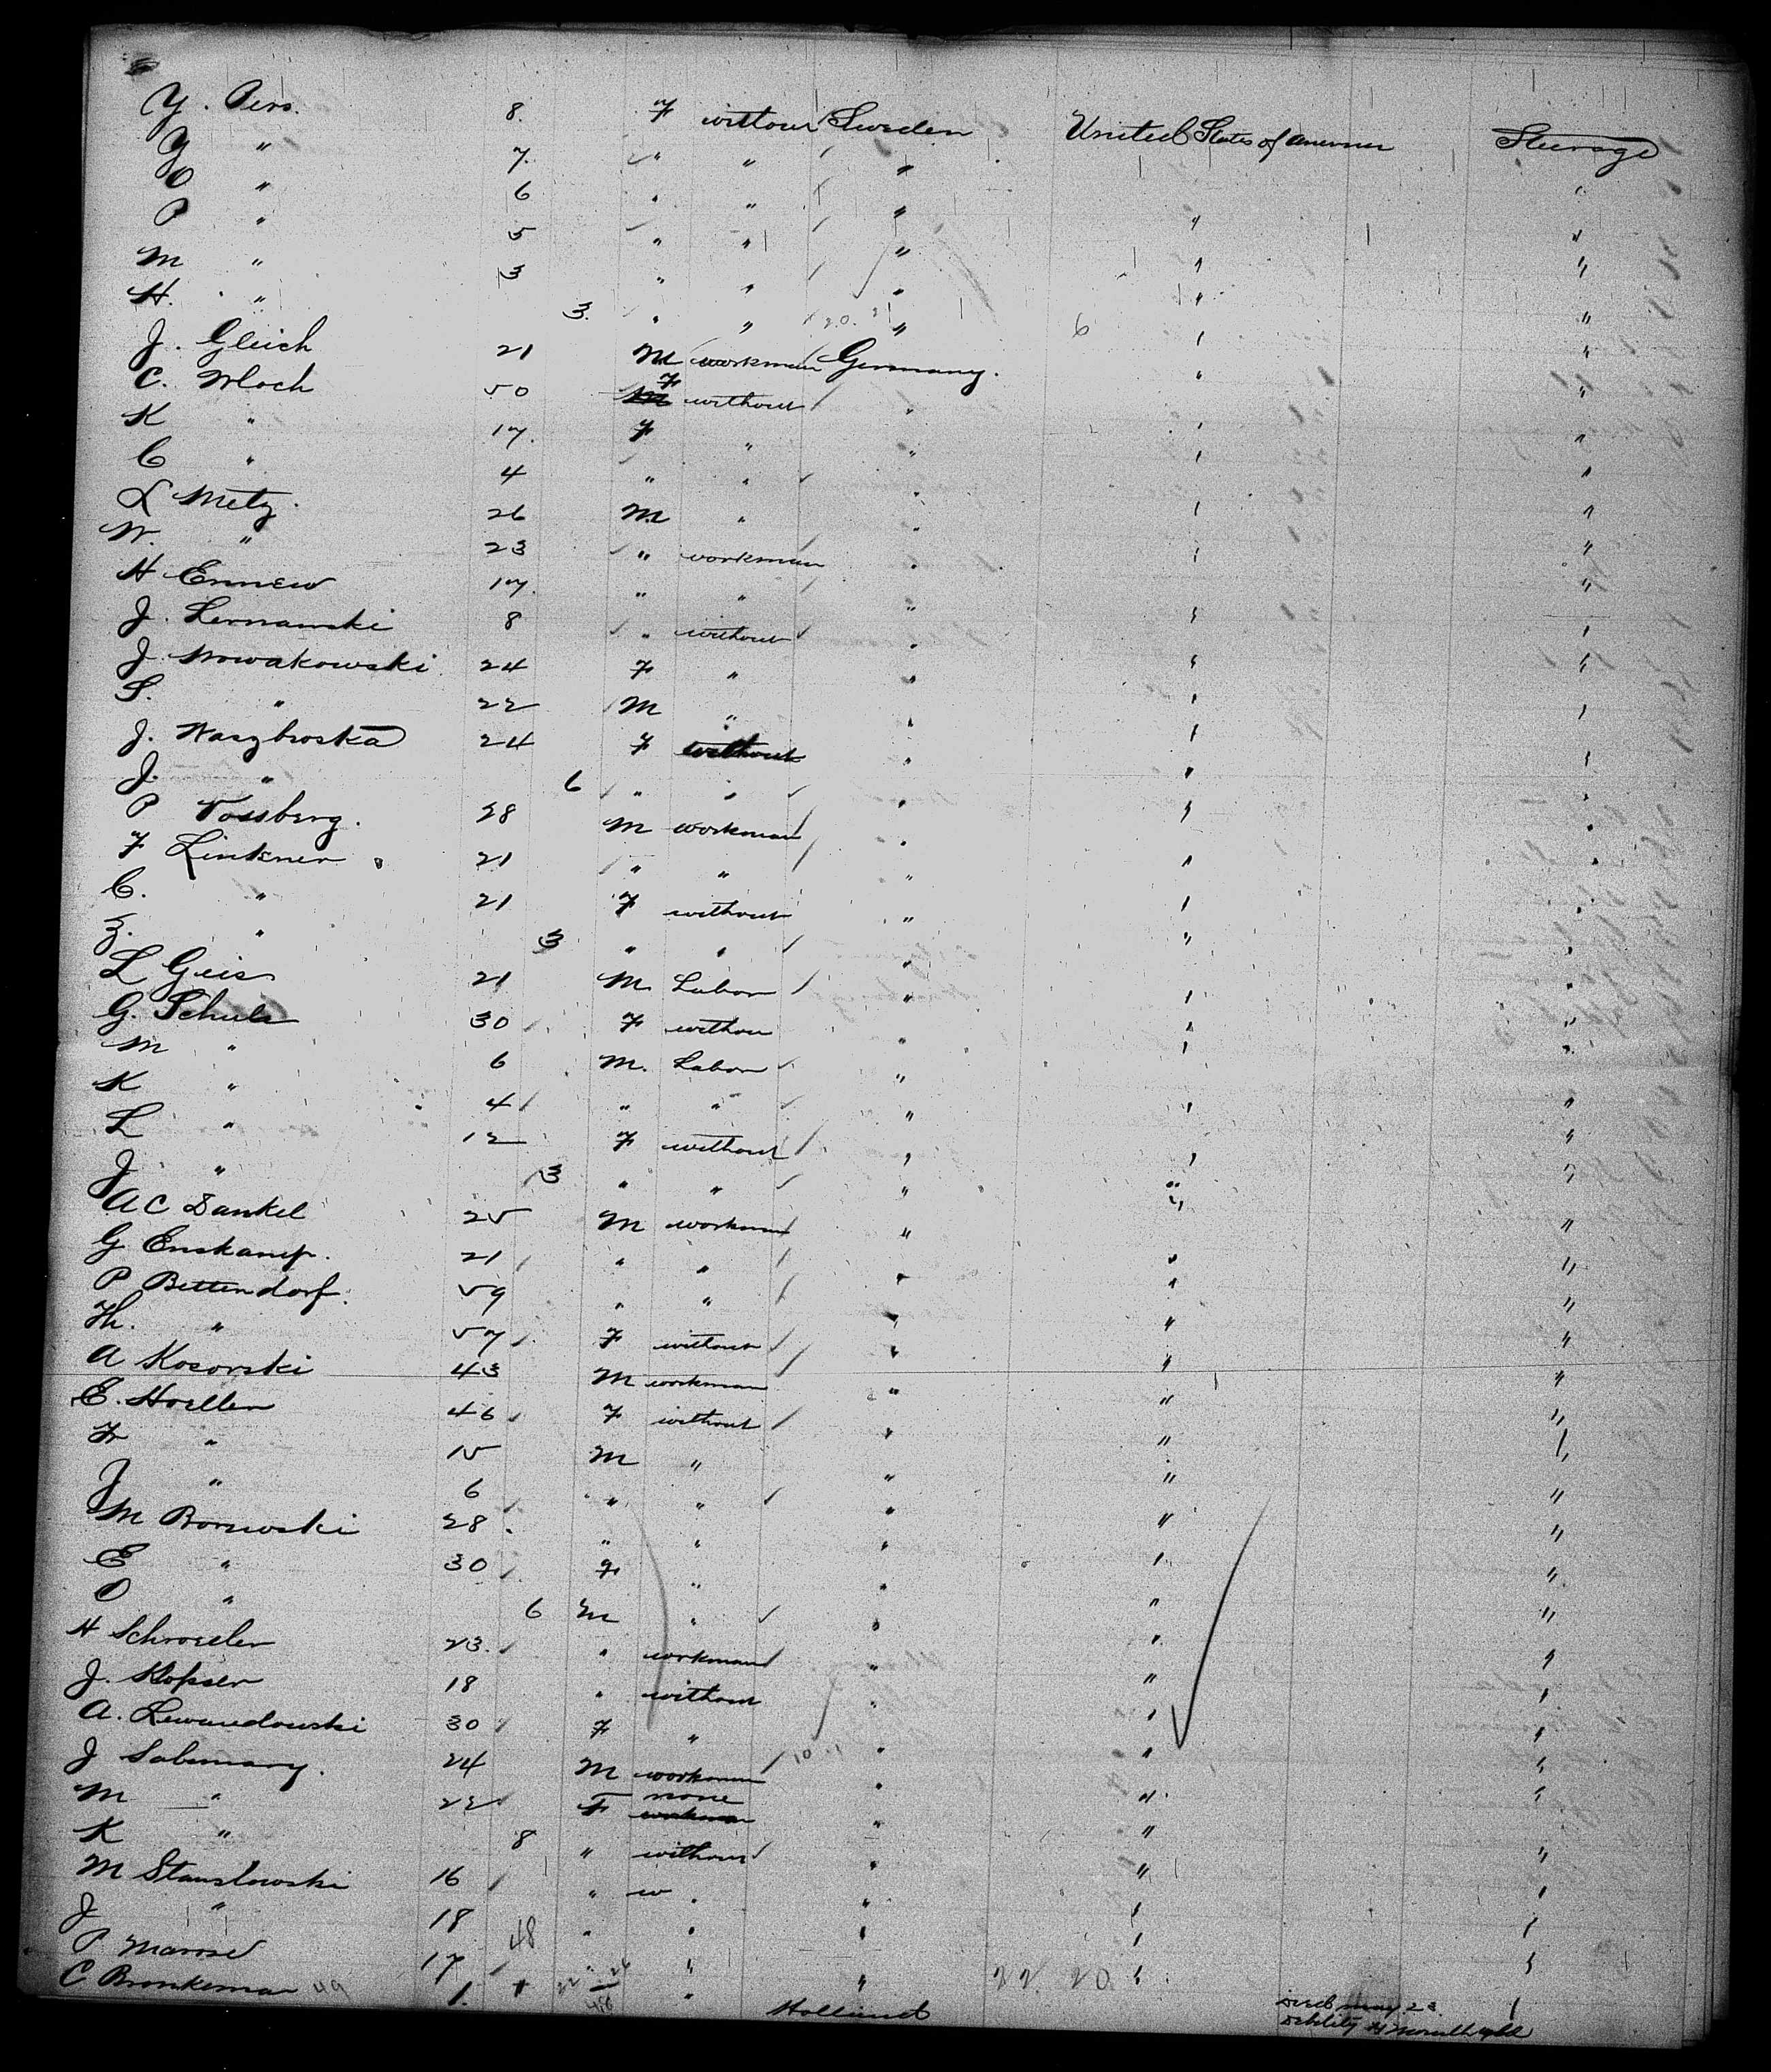 Y. Pers. 8. F without Sweden United States of America Steerage
Y " 7. " " " "
O " 6 " " " " "
P " 5 " " " " "
M " 3 " " " " "
H. " 3. " " " " "
J. Gleich 21 M workman Germany. " "
C. Wloch 50 F without " " "
K " 17. F " " " "
C " 4 " " " " "
L Metz. 26 M " " " "
W. " 23 " workman " " "
H Ennew 17. " " " " "
J. Lernawski 8 " without " " "
J. Nowakowski 24 F " " " "
S. " 22 M " " " "
J. Waszbroska 24 F without " " "
J. " 6 " " " " "
P Vossberg. 28 M workman " " "
F Linkner 21 " " " " "
C. " 21 F without " " "
Z. " 3 " " " " "
L Geis 21 M. Labor " " "
G. Schulz 30 F without " " "
M " 6 M. Labor " " "
K " 4 " " " " "
L " 12 F without " " "
J " 3 " " " " "
A C Dankel 25 M workman " " "
G Enskamp. 21 " " " " "
P Bettendorf. 59 " " " " "
Th. " 57 F without " " "
A Kosorski 43 M workman " " "
E. Hoeller 46 F without " " "
Fr " 15 M " " " "
J " 6 " " " " "
M Borowski 28 " " " " "
E " 30 F " " " "
O " 6 M " " " "
H Schroeder 23. " workman " " "
J. Klopser 18 " without " " "
A. Lewandowski 30 F " " " "
J Salomary. 24 M workman " " "
M " 22 F none " " "
K " 8 " without " " "
M Stanslowski 16 " w " " "
J " 18 " " " " "
P. Marose 17 " " " " "
C Bronkema 49 1. " Holland died May 23. "
debility